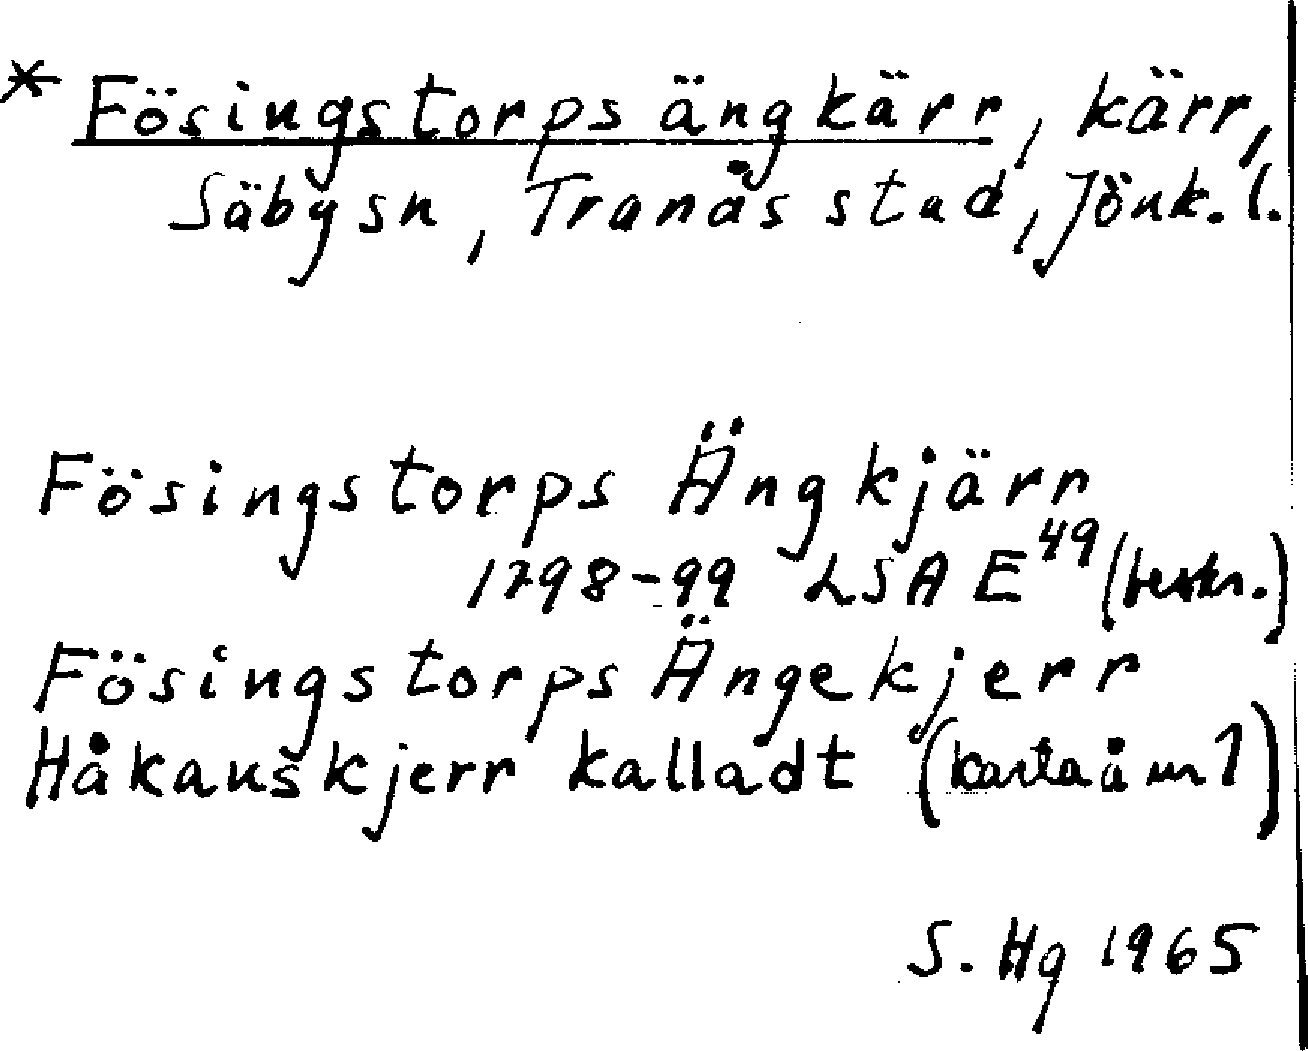 * Fösingstorps ängkärr, kärr,
Säbysn, Tranås stad, Jönk. l.
Fösingstorps Ängkjärr
1798-99 LSA E49 (beskr.)
Fösingstorps Ängekjerr
Håkanskjerr kalladt (karta å m 1)
S. Hg 1965